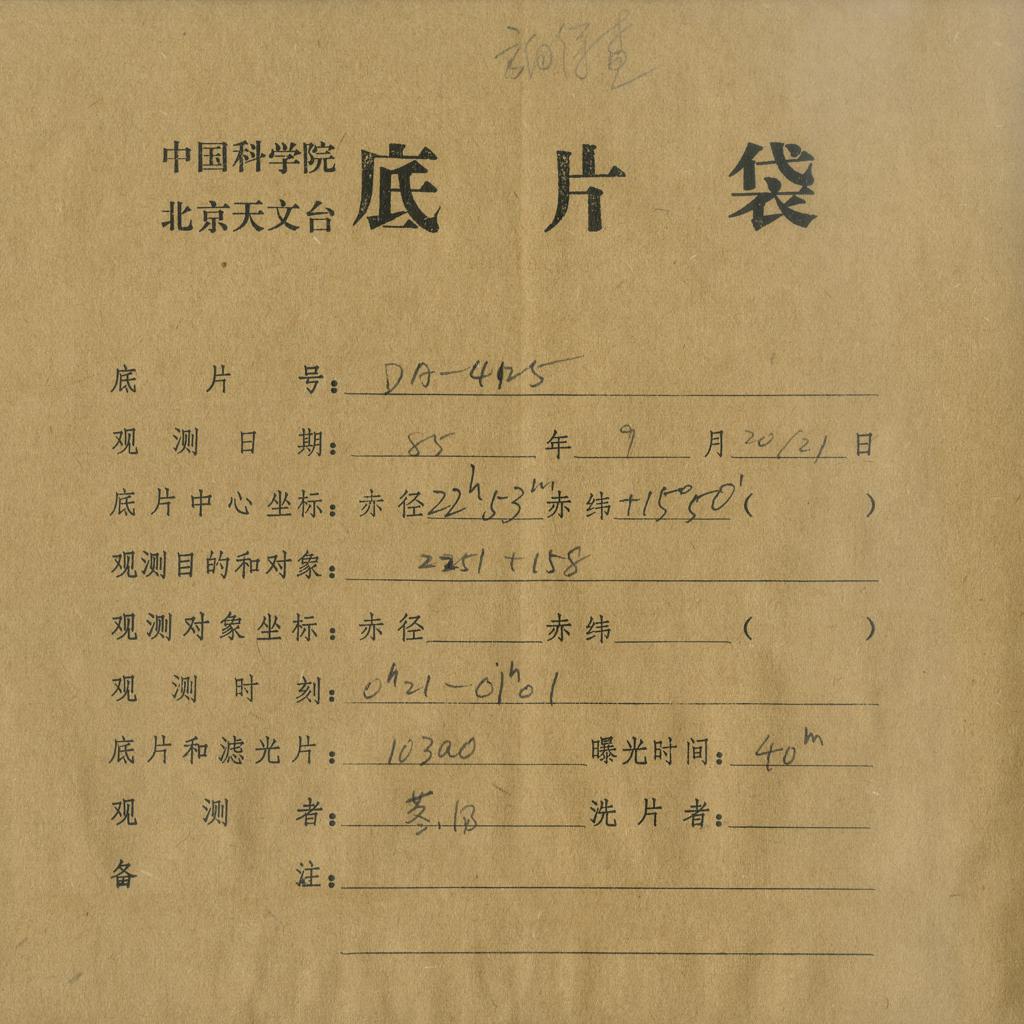 中国科学院
北京天文台
底片袋
底片号：DA-4125
观测日期：85年9月20/21日
底片中心坐标：赤径22h53m赤纬+15°50'(　)
观测目的和对象：2251+158
观测对象坐标：赤径　赤纬　(　)
观测时刻：0h21-01h01
底片和滤光片：103a0　曝光时间：40m
观测者：　洗片者：
备注：